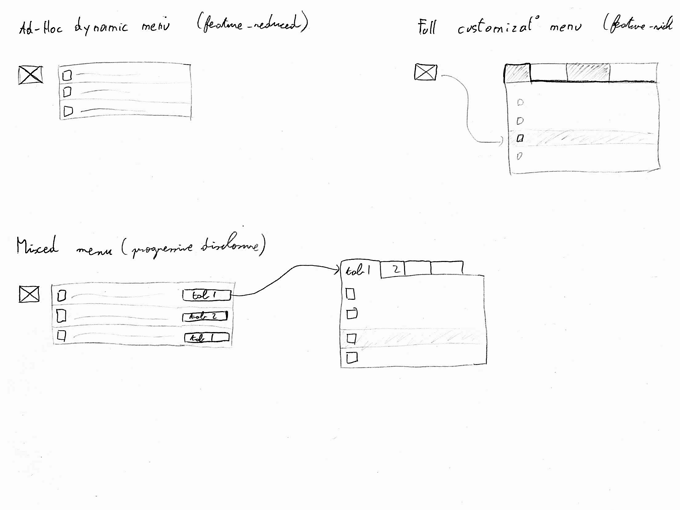 Ad-Hoc dynamic menu (feature-reduced)
Full customizat° menu (feature-rich
Mixed menu (progressive disclosure)
tab 1
tab 2
tab 1
tab 1
2